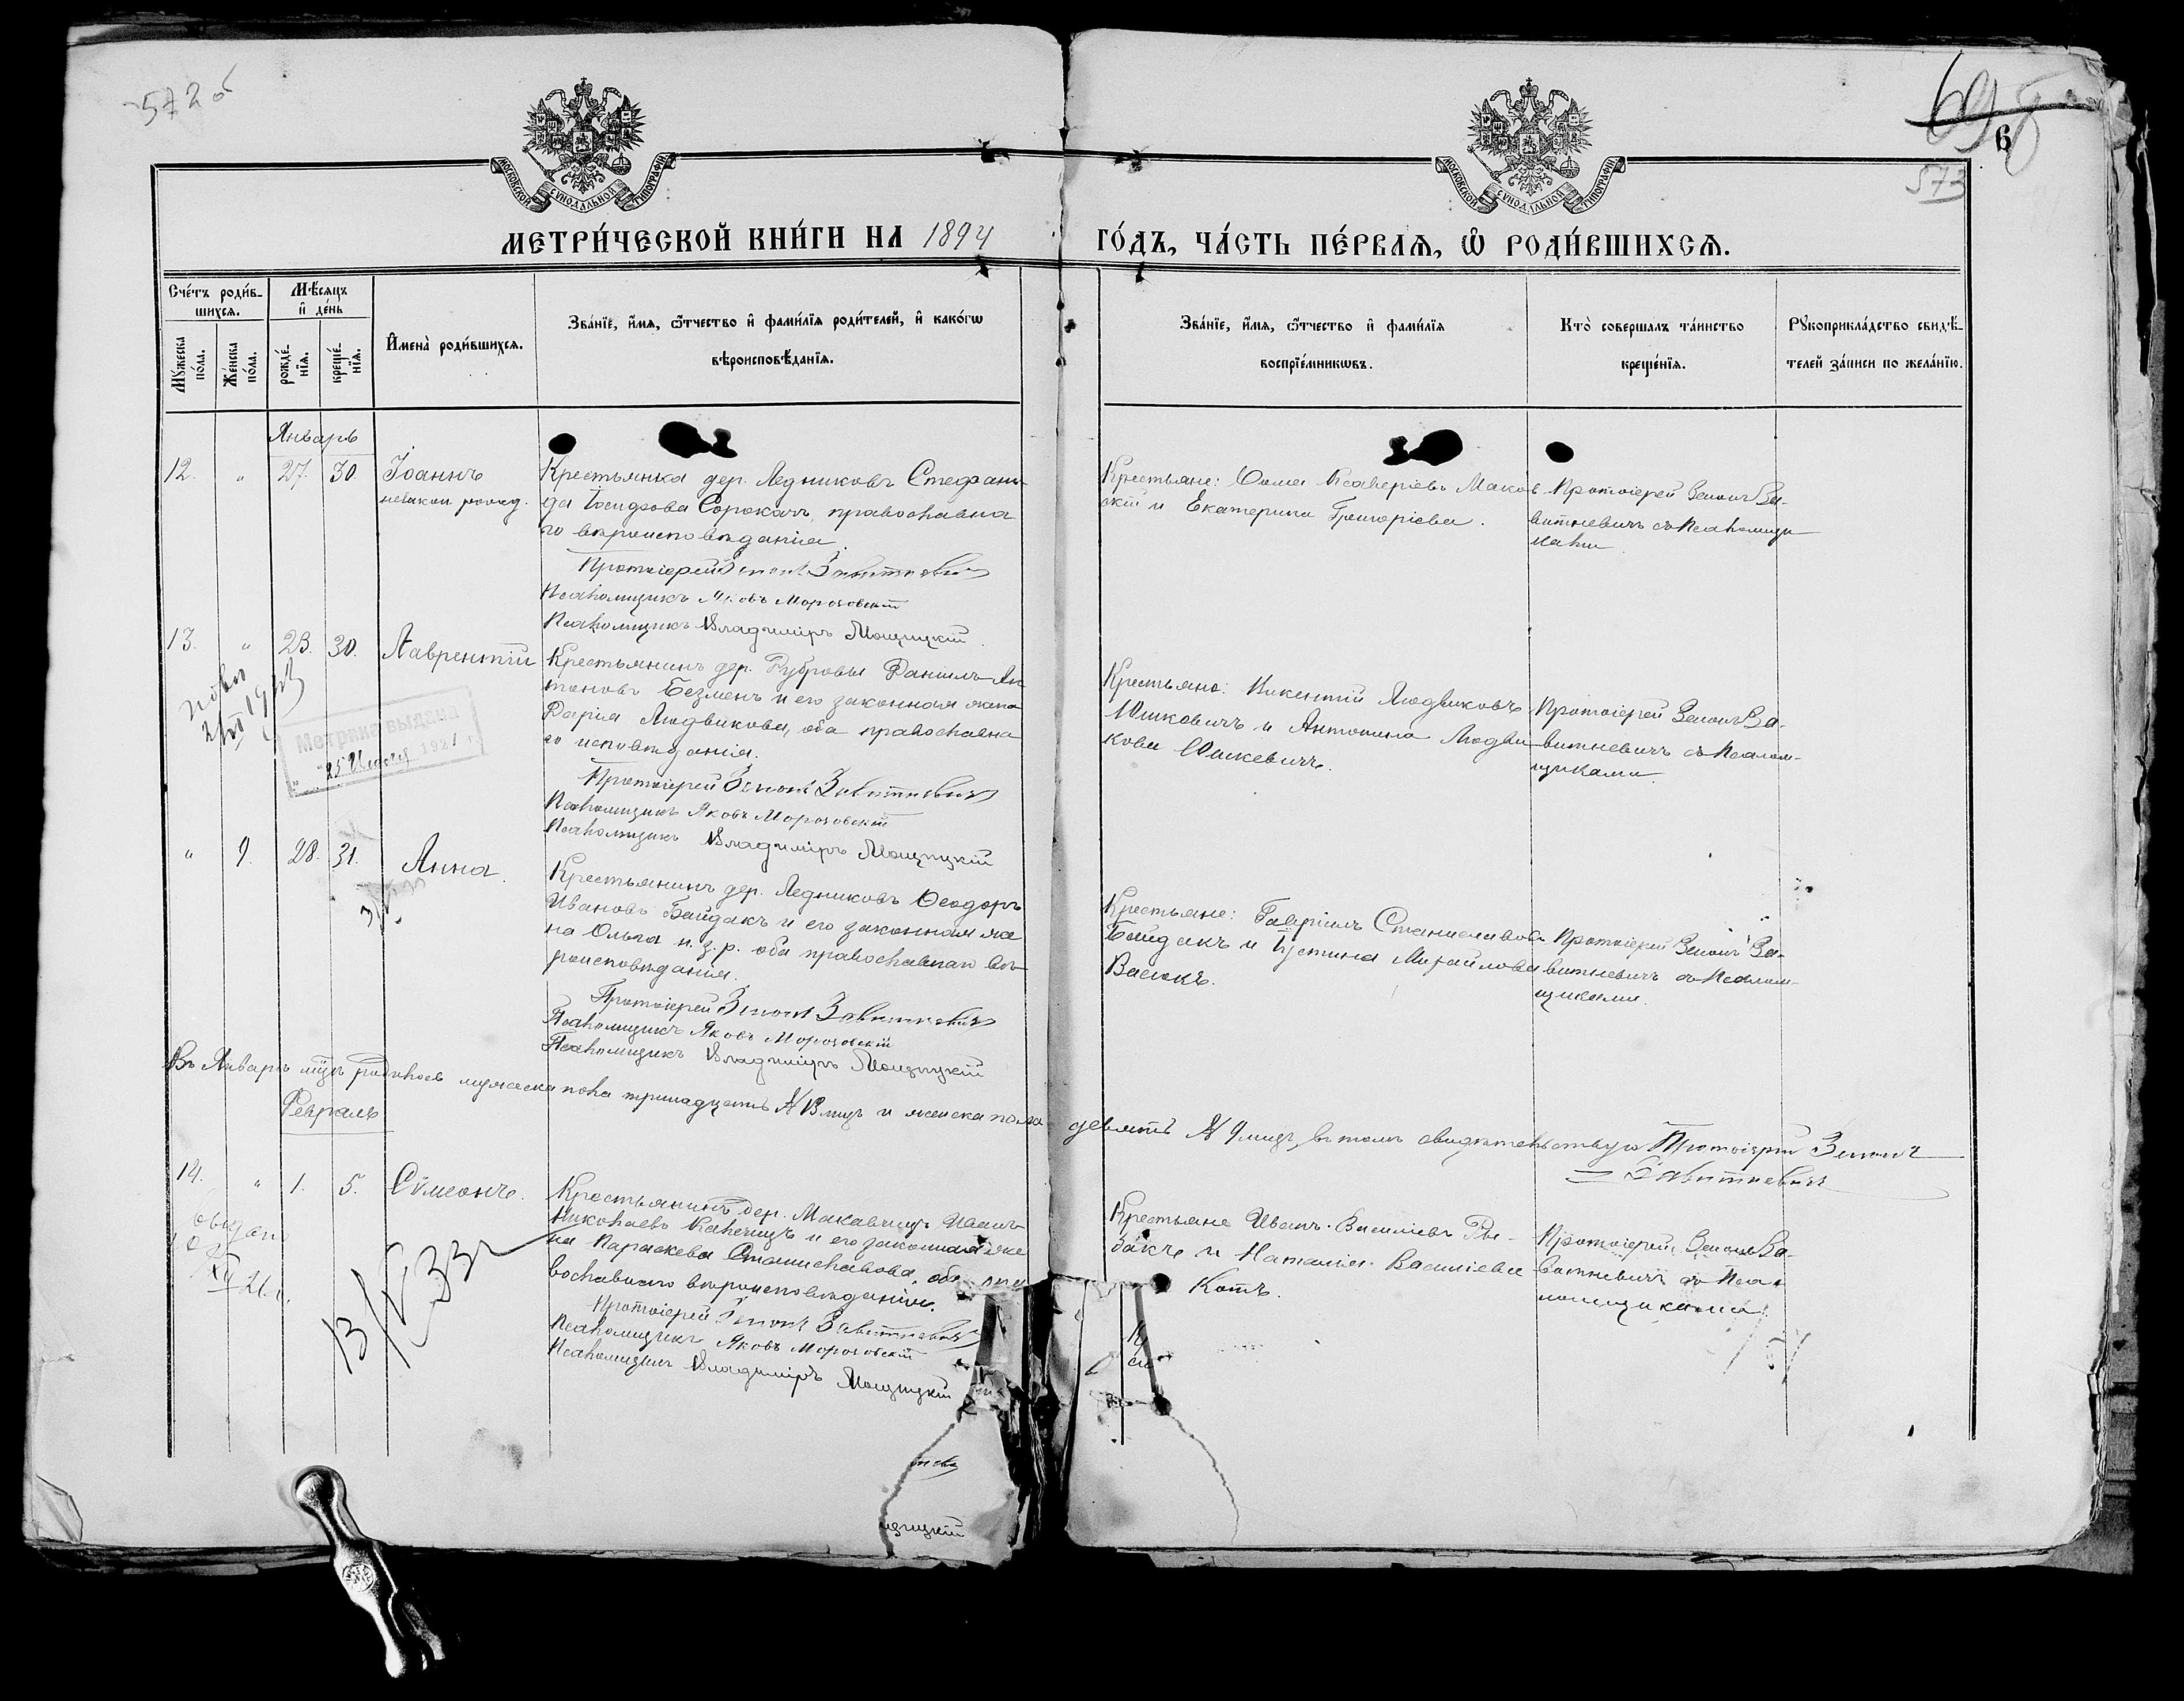 572 об
6
573
МОСКОВСКОЙ СѴНОДАЛЬНОЙ ТИПОГРАФІИ
МОСКОВСКОЙ СѴНОДАЛЬНОЙ ТИПОГРАФІИ
МЕТРИ́ЧЕСКОЙ КНИ́ГИ НА 1894 ГО́ДЪ, ЧА́СТЬ ПЕ́РВАѦ, Ѽ РОДИ́ВШИХСѦ.
Счéтъ роди́в-
шихсѧ.
Мꙋ́жеска по́ла.
Же́нска по́ла.
Мѣ́сѧцъ
и҆ де́нь
рожде́-
нїѧ.
креще́-
нїѧ.
И҆мена̀ роди́вшихсѧ.
Зва́нїе, и҆́мѧ, ѻ҆́тчество и҆ фами́лїѧ роди́телей, и҆ како́гѡ
вѣроисповѣ́данїѧ.
Зва́нїе, и҆́мѧ, ѻ҆́тчество и҆ фами́лїѧ
воспрїе́мникѡвъ.
Кто̀ соверша́лъ та́инство
креще́нїѧ.
Рꙋкоприкла́дство свидѣ́-
телей за́писи по жела́нїю.
Январь
12. " 27. 30. Іоаннъ
незакон. рожд.
Крестьянка дер. Ледниковъ Стефани-
да Іосифова Сорокачъ, православна
го вѣроисповѣданія.
Протоіерей Зенонъ Завитневичъ
Псаломщикъ Яковъ Морозовскій
Псаломщикъ Владиміръ Мощицкій
Крестьяне: Ѳома Ксаверіевъ Маков
скій и Екатерина Григоріева.
Протоіерей Зенонъ За-
витневичъ съ Псаломщи
ками
13. " 28. 30. Лаврентій
Крестьянинъ дер. Дубровы Даніилъ Ан
тоновъ Безменъ и его законная жена
Дарія Людвикова, оба православна
го исповѣданія.
Протоіерей Зенонъ Завитневичъ
Псаломщикъ Яковъ Морозовскій
Псаломщикъ Владиміръ Мощицкій
Крестьяне: Викентій Людвиковъ
Юшкевичъ и Антонина Людви
кова Юшкевичъ.
Протоіерей Зенонъ За-
витневичъ съ Псалом-
щиками
Метрика выдана
25 192 г.
" 9. 28. 31. Анна.
Крестьянинъ дер. Ледниковъ Ѳеодоръ
Ивановъ Байдакъ и его законная же
на Ольга н. з. р. оба православнаго вѣ-
роисповѣданія.
Протоіерей Зенонъ Завитневичъ
Псаломщикъ Яковъ Морозовскій
Псаломщикъ Владиміръ Мощицкій
Крестьяне: Гавріилъ Станиславовъ
Байдакъ и Іустина Михайлова
Васюкъ.
Протоіерей Зенонъ За-
витневичъ съ Псалом-
щиками.
Въ Январѣ мцѣ родилось мужеска пола тринадцать № 13 лицъ и женска пола девять № 9 лицъ, въ томъ свидѣтельствую Протоіерей Зенонъ
Завитневичъ
Февраль
14. " 1. 5. Сѵмеонъ.
Крестьянинъ дер. Макавчицъ Иванъ
Николаевъ и его законная же
на Параскева Станиславова, оба пра
вославнаго вѣроисповѣданія.
Протоіерей Зенонъ Завитневичъ
Псаломщикъ Яковъ Морозовскій
Псаломщикъ Владиміръ Мощицкій
Крестьяне Иванъ Василіевъ Ры-
бакъ и Наталія Василіева
Котъ.
Протоіерей Зенонъ За-
витневичъ съ Пса-
ломщиками.